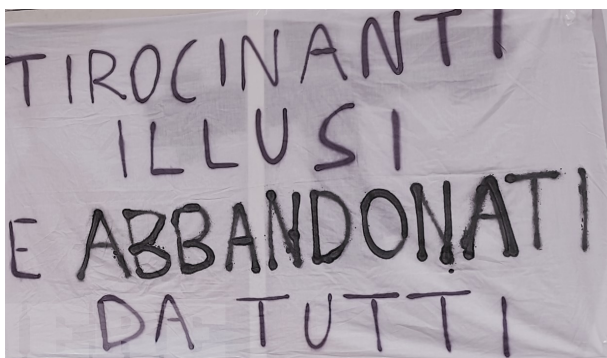 TIROCINANTI
ILLUSI
E ABBANDONATI
DA TUTTI